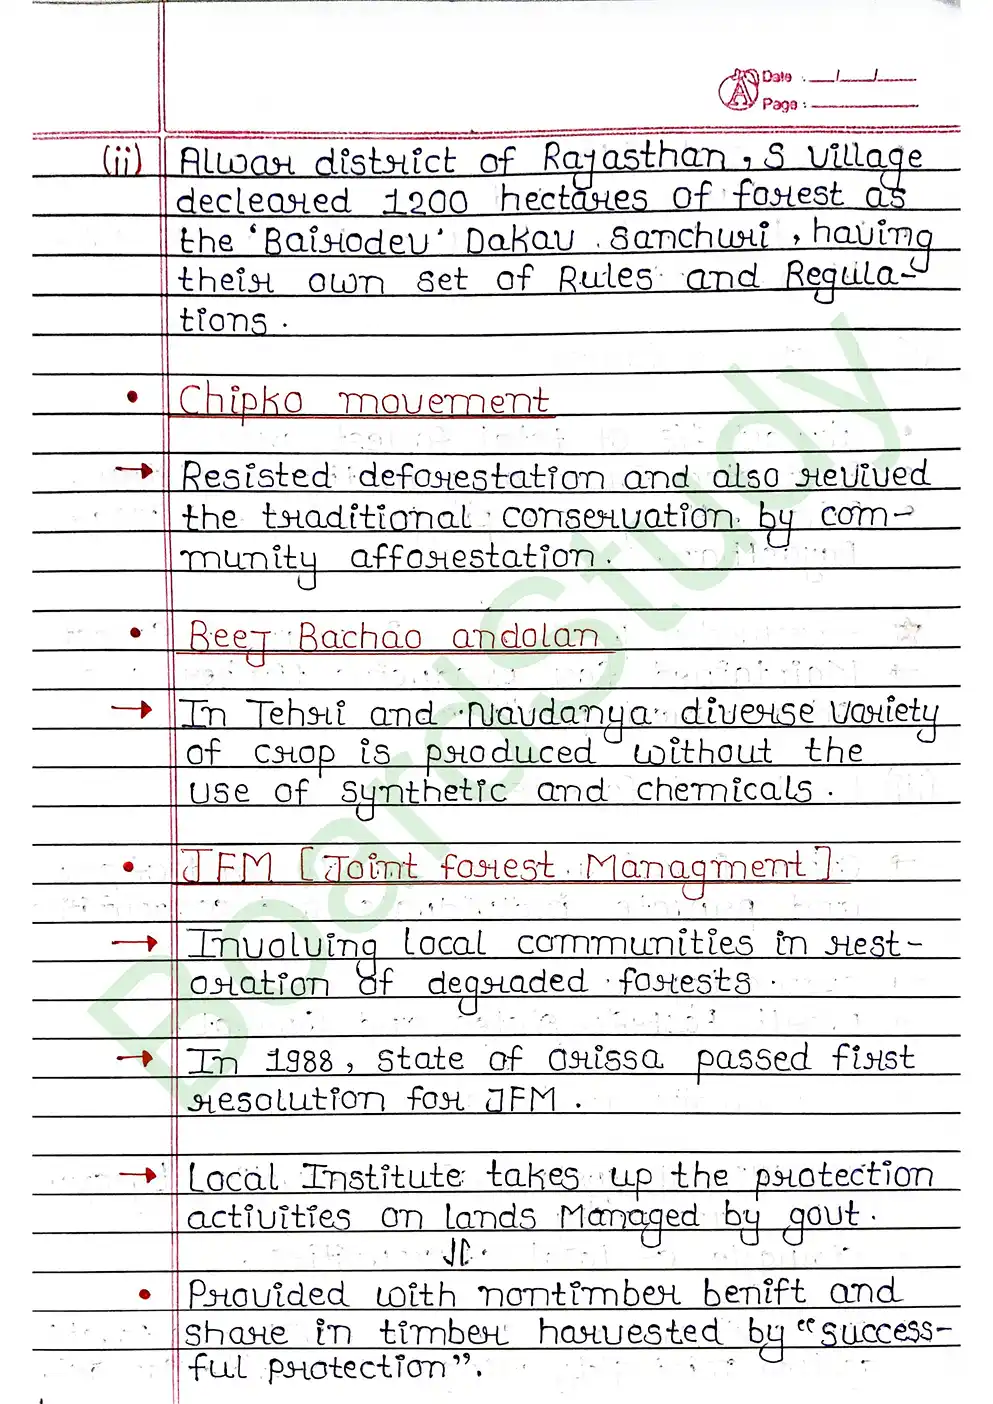 Date : __/__/__
Page : ______
(ii) Alwar district of Rajasthan, 5 village
decleared 1200 hectares of forest as
the 'Bairodev' Dakav Sanchuri, having
their own set of Rules and Regula-
tions.
• Chipko movement
→ Resisted deforestation and also revived
the traditional conservation by com-
munity afforestation.
• Beej Bachao andolan
→ In Tehri and Navdanya diverse variety
of crop is produced without the
use of synthetic and chemicals.
• JFM [Joint forest Managment]
→ Involving local communities in rest-
oration of degraded forests.
→ In 1988, state of Orissa passed first
resolution for JFM.
→ Local Institute takes up the protection
activities on lands Managed by govt.
• Provided with nontimber benift and
share in timber harvested by "success-
ful protection".
BoardStudy